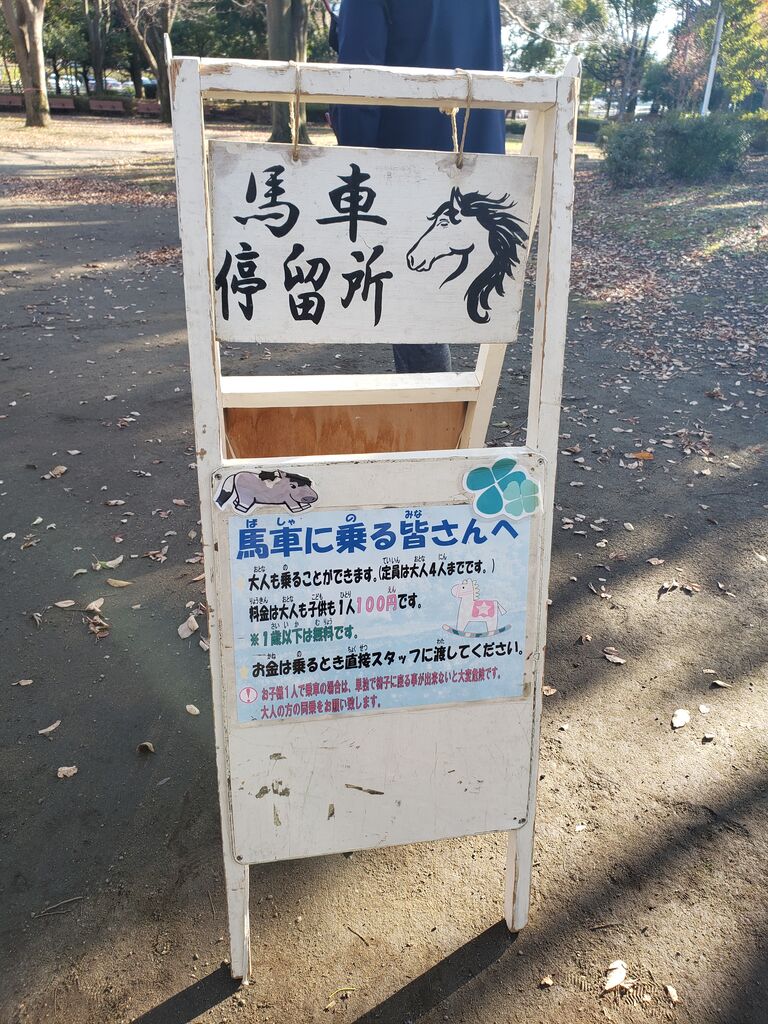 馬車
停留所
馬車に乗る皆さんへ
大人も乗ることができます。(定員は大人4人までです。)
料金は大人も子供も1人100円です。
※1歳以下は無料です。
お金は乗るとき直接スタッフに渡してください。
お子様1人で乗車の場合は、単独で椅子に座る事が出来ないと大変危険です。
大人の方の同乗をお願い致します。